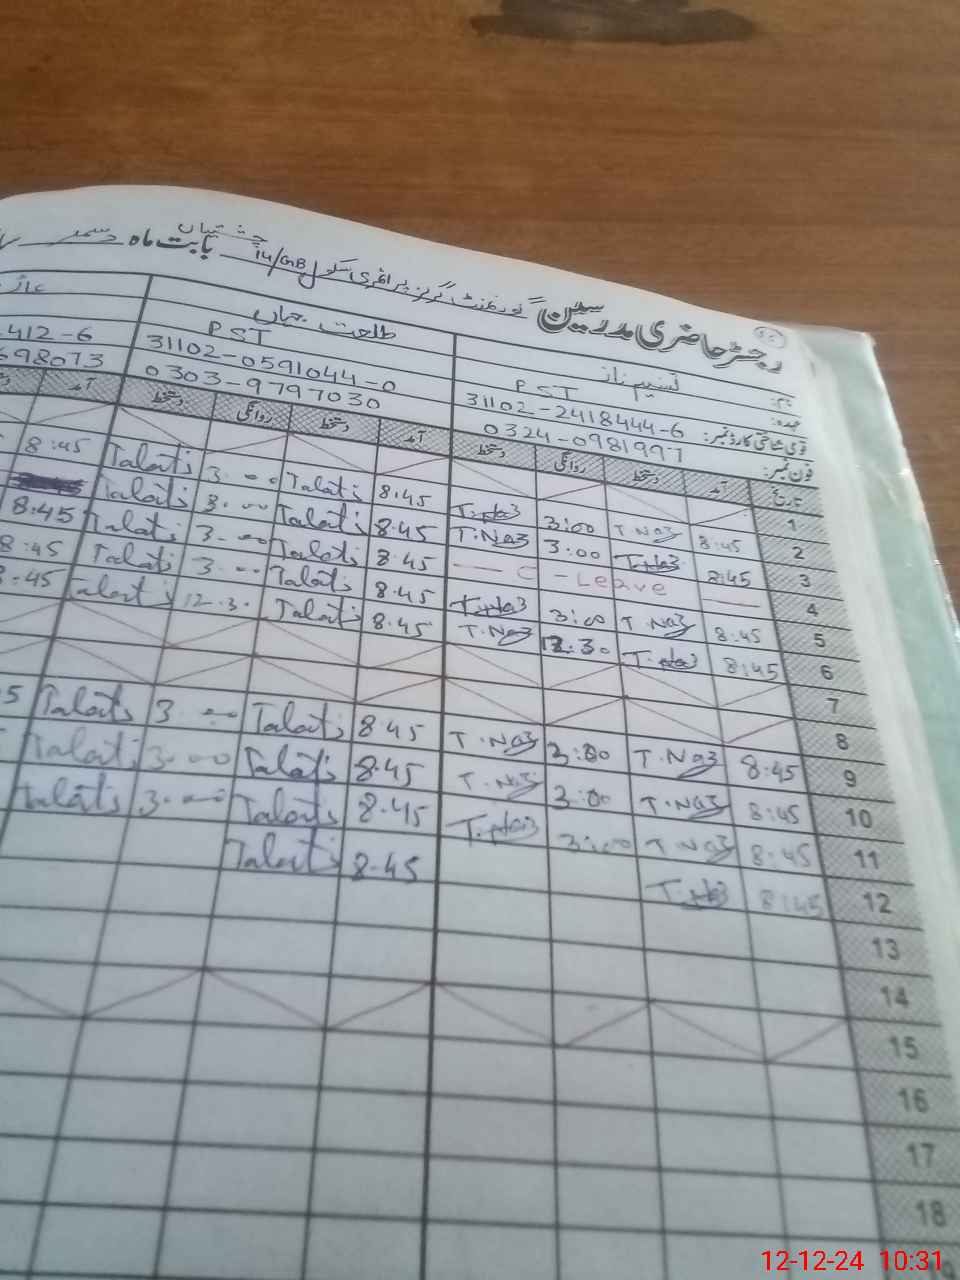 رجسٹر حاضری مدرسین گورنمنٹ گرلز پرائمری سکول 14/GB چشتیاں بابت ماہ دسمبر
نام: تسنیم ناز طلعت جہاں
عہدہ: PST PST
قومی شناختی کارڈ نمبر: 31102-2418444-6 31102-0591044-0 412-6
فون نمبر: 0324-0981997 0303-9797030 698073
تاریخ آمد دستخط روانگی دستخط آمد دستخط روانگی دستخط آمد
1
2 8:45 T.Naz 3:00 T.Naz 8.45 Talat j 3.00 Talat j 8:45
3 8:45 T.Naz 3:00 T.Naz 8.45 Talat j 3.00 Talat j
4 — C - Leave — 8.45 Talat j 3.00 Talat j 8:45
5 8:45 T.Naz 3:00 T.Naz 8.45 Talat j 3.00 Talat j 8:45
6 8:45 T.Naz 12:30 T.Naz 8.45 Talat j 12.30 Talat j 8.45
7
8
9 8:45 T.Naz 3:00 T.Naz 8.45 Talat j 3.00 Talat j 5
10 8:45 T.Naz 3:00 T.Naz 8.45 Talat j 3.00 Talat j
11 8:45 T.Naz 3:00 T.Naz 8.45 Talat j 3.00 Talat j
12 8:45 T.Naz 8.45 Talat j
13
14
15
16
17
18
12-12-24 10:31